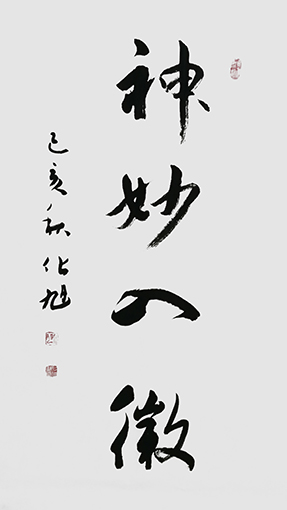 神妙入微
己亥秋佔旭